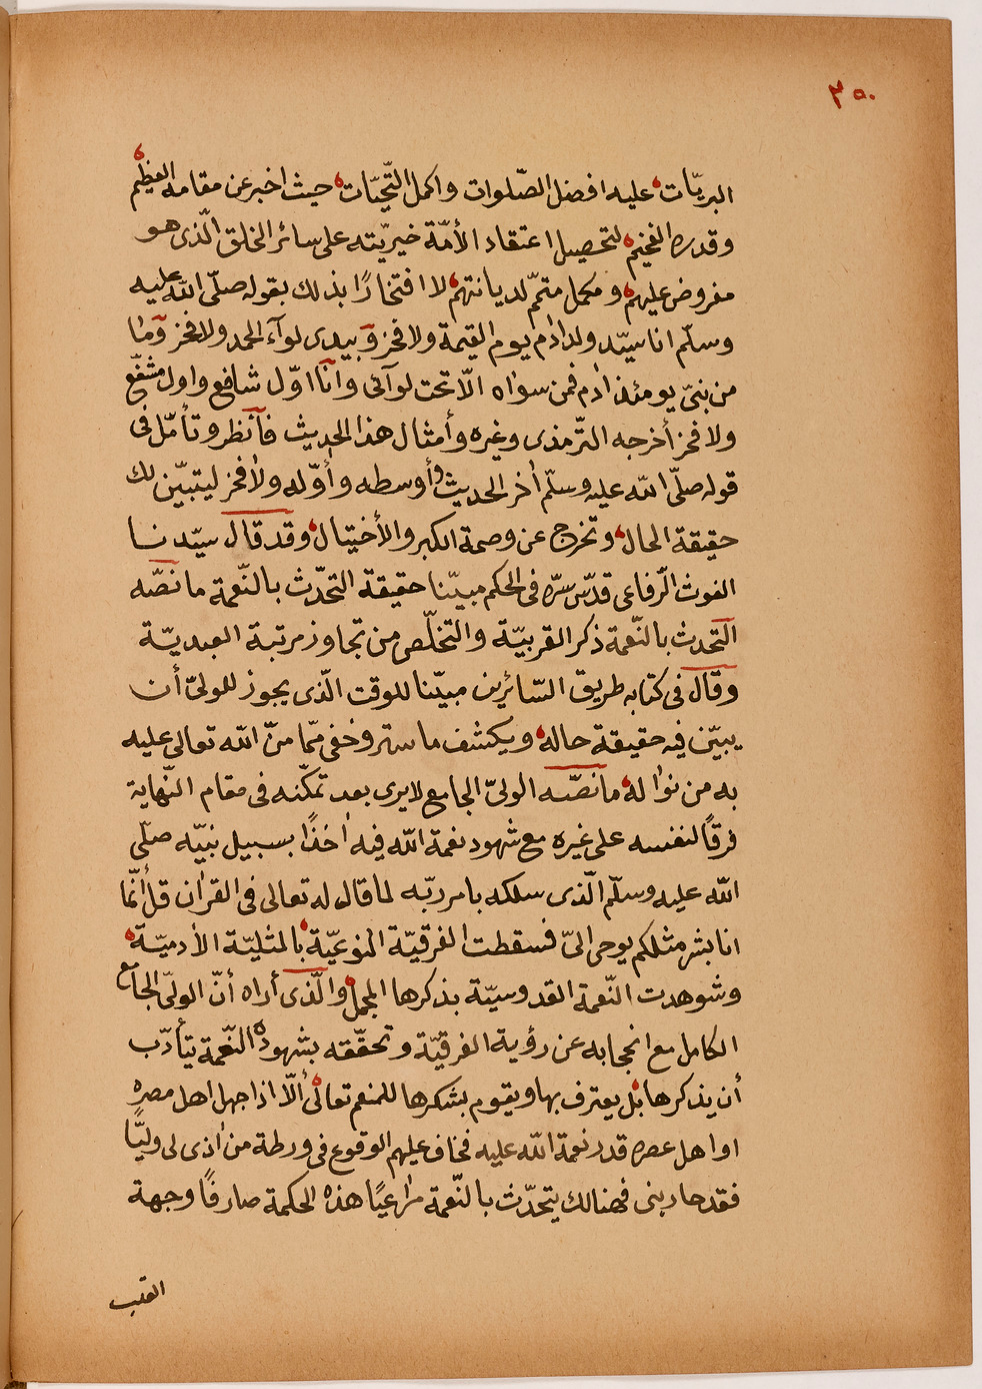 ٣٥٠
البريّات، عليه افضل الصّلوات واكمل التّحيّات، حيث اخبر عن مقامه العظيم،
وقدره الفخيم، لتحصيل اعتقاد الأمّة خيريّته على سائر الخلق الّذى هو
مفروض عليهم، ومكمل متمّم لديانتهم، لا افتخارًا بذلك بقوله صلّى الله عليه
وسلّم انا سيّد ولد اٰدم يوم القيمة ولا فخر وبيدى لوآء الحمد ولا فخر وما
من نبىّ يومئذ اٰدم فمن سواه الّا تحت لوآئى وانا اوّل شافع واول مشفّع
ولا فخر أخرجه التّرمذى وغيره وأمثال هذا الحديث فانظر وتأمّل فى
قوله صلّى الله عليه وسلّم اٰخر الحديث وأوسطه وأوّله ولا فخر ليتبيّن لك
حقيقة الحال، وتخرج عن وصمة الكبر والأختيال، وقد قال سيّدنا
الغوث الرّفاعى قدّس سرّه فى الحكم مبيّنا حقيقة التحدّث بالنّعمة ما نصّه
التّحدث بالنّعمة ذكر القربيّة والتخلّص من تجاوز مرتبة العبديّة
وقال فى كتابه طريق السّائرين مبيّنا للوقت الّذى يجوز للولىّ أن
يبيّن فيه حقيقة حاله، ويكشف ما ستر وخفى ممّا منّ الله تعالى عليه
به من نواله، ما نصّه الولىّ الجامع لا يرى بعد تمكّنه فى مقام النّهاية
فرقًا لنفسه على غيره مع شهود نعمة الله فيه اٰخذًا بسبيل نبيّه صلّى
الله عليه وسلّم الّذى سلكه بامر ربّه لما قال له تعالى فى القراٰن قل أنّما
انا بشر مثلكم يوحى الىّ فسقطت الفرقيّة النوعيّة، بالمثليّة الأدميّة،
وشوهدت النّعمة القدوسيّة بذكرها المجمل، والّذى أراه أنّ الولىّ الجامع
الكامل مع انجابه عن رؤية الفرقيّة وتحقّقه بشهوده النّعمة يتأدّب
أن يذكرها، بل يعترف بها ويقوم بشكرها للمنعم تعالى، ألّا اذا جهل اهل مصره
او اهل عصره قدر نعمة الله عليه فخاف عليهم الوقوع فى ورطة من اٰذى لى وليًّا
فقد حاربنى فهنالك يتحدّث بالنّعمة مراعيًا هذه الحكمة صارفًا وجهة
القلب